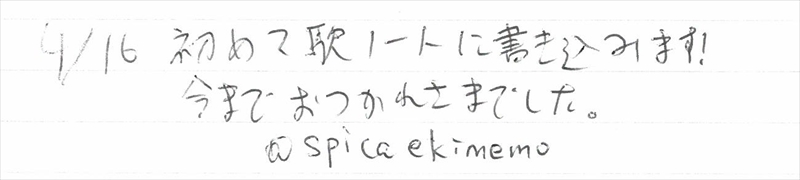 4/16 初めて駅ノートに書き込みます!
今までおつかれさまでした。
@spica ekimemo